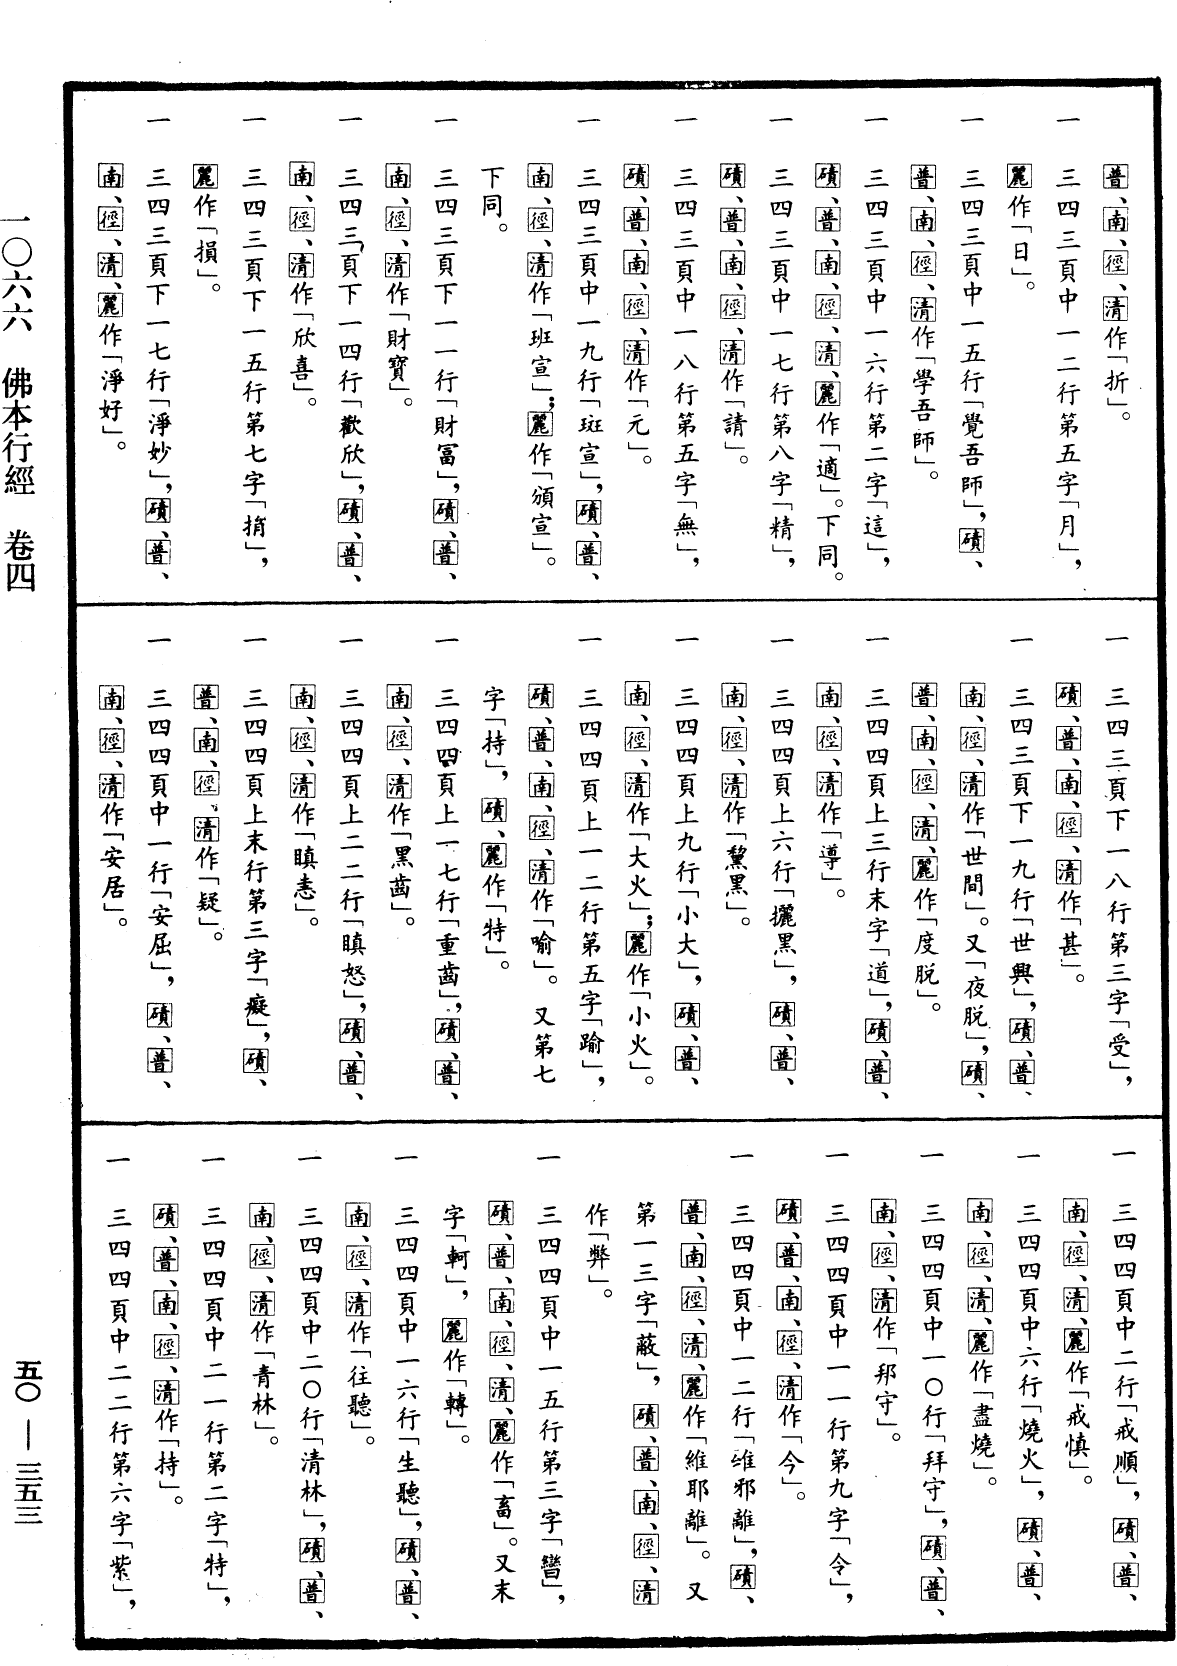 普、南、徑、清作「折」。
一　三四三頁中一二行第五字「月」，
麗作「日」。
一　三四三頁中一五行「覺吾師」，磧、
普、南、徑、清作「學吾師」。
一　三四三頁中一六行第二字「這」，
磧、普、南、徑、清、麗作「適」。下同。
一　三四三頁中一七行第八字「精」，
磧、普、南、徑、清作「請」。
一　三四三頁中一八行第五字「無」，
磧、普、南、徑、清作「元」。
一　三四三頁中一九行「斑宣」，磧、普、
南、徑、清作「班宣」；麗作「頒宣」。
下同。
一　三四三頁下一一行「財富」，磧、普、
南、徑、清作「財寶」。
一　三四三頁下一四行「歡欣」，磧、普、
南、徑、清作「欣喜」。
一　三四三頁下一五行第七字「捐」，
麗作「損」。
一　三四三頁下一七行「淨妙」，磧、普、
南、徑、清、麗作「淨好」。
一　三四三頁下一八行第三字「受」，
磧、普、南、徑、清作「甚」。
一　三四三頁下一九行「世興」，磧、普、
南、徑、清作「世間」。又「夜脱」，磧、
普、南、徑、清、麗作「度脱」。
一　三四四頁上三行末字「道」，磧、普、
南、徑、清作「導」。
一　三四四頁上六行「攦黑」，磧、普、
南、徑、清作「黧黑」。
一　三四四頁上九行「小大」，磧、普、
南、徑、清作「大火」；麗作「小火」。
一　三四四頁上一二行第五字「踰」，
磧、普、南、徑、清作「喻」。又第七
字「持」，磧、麗作「特」。
一　三四四頁上一七行「重齒」，磧、普、
南、徑、清作「黑齒」。
一　三四四頁上二二行「瞋怒」，磧、普、
南、徑、清作「瞋恚」。
一　三四四頁上末行第三字「癡」，磧、
普、南、徑、清作「疑」。
一　三四四頁中一行「安屈」，磧、普、
南、徑、清作「安居」。
一　三四四頁中二行「戒順」，磧、普、
南、徑、清、麗作「戒慎」。
一　三四四頁中六行「燒火」，磧、普、
南、徑、清、麗作「盡燒」。
一　三四四頁中一〇行「拜守」，磧、普、
南、徑、清作「邦守」。
一　三四四頁中一一行第九字「令」，
磧、普、南、徑、清作「今」。
一　三四四頁中一二行「維邪離」，磧、
普、南、徑、清、麗作「維耶離」。又
第一三字「蔽」，磧、普、南、徑、清
作「弊」。
一　三四四頁中一五行第三字「轡」，
磧、普、南、徑、清、麗作「畜」。又末
字「軻」，麗作「轉」。
一　三四四頁中一六行「生聽」，磧、普、
南、徑、清作「往聽」。
一　三四四頁中二〇行「清林」，磧、普、
南、徑、清作「青林」。
一　三四四頁中二一行第二字「特」，
磧、普、南、徑、清作「持」。
一　三四四頁中二二行第六字「紫」，
一〇六六　佛本行經　卷四
五〇—三五三